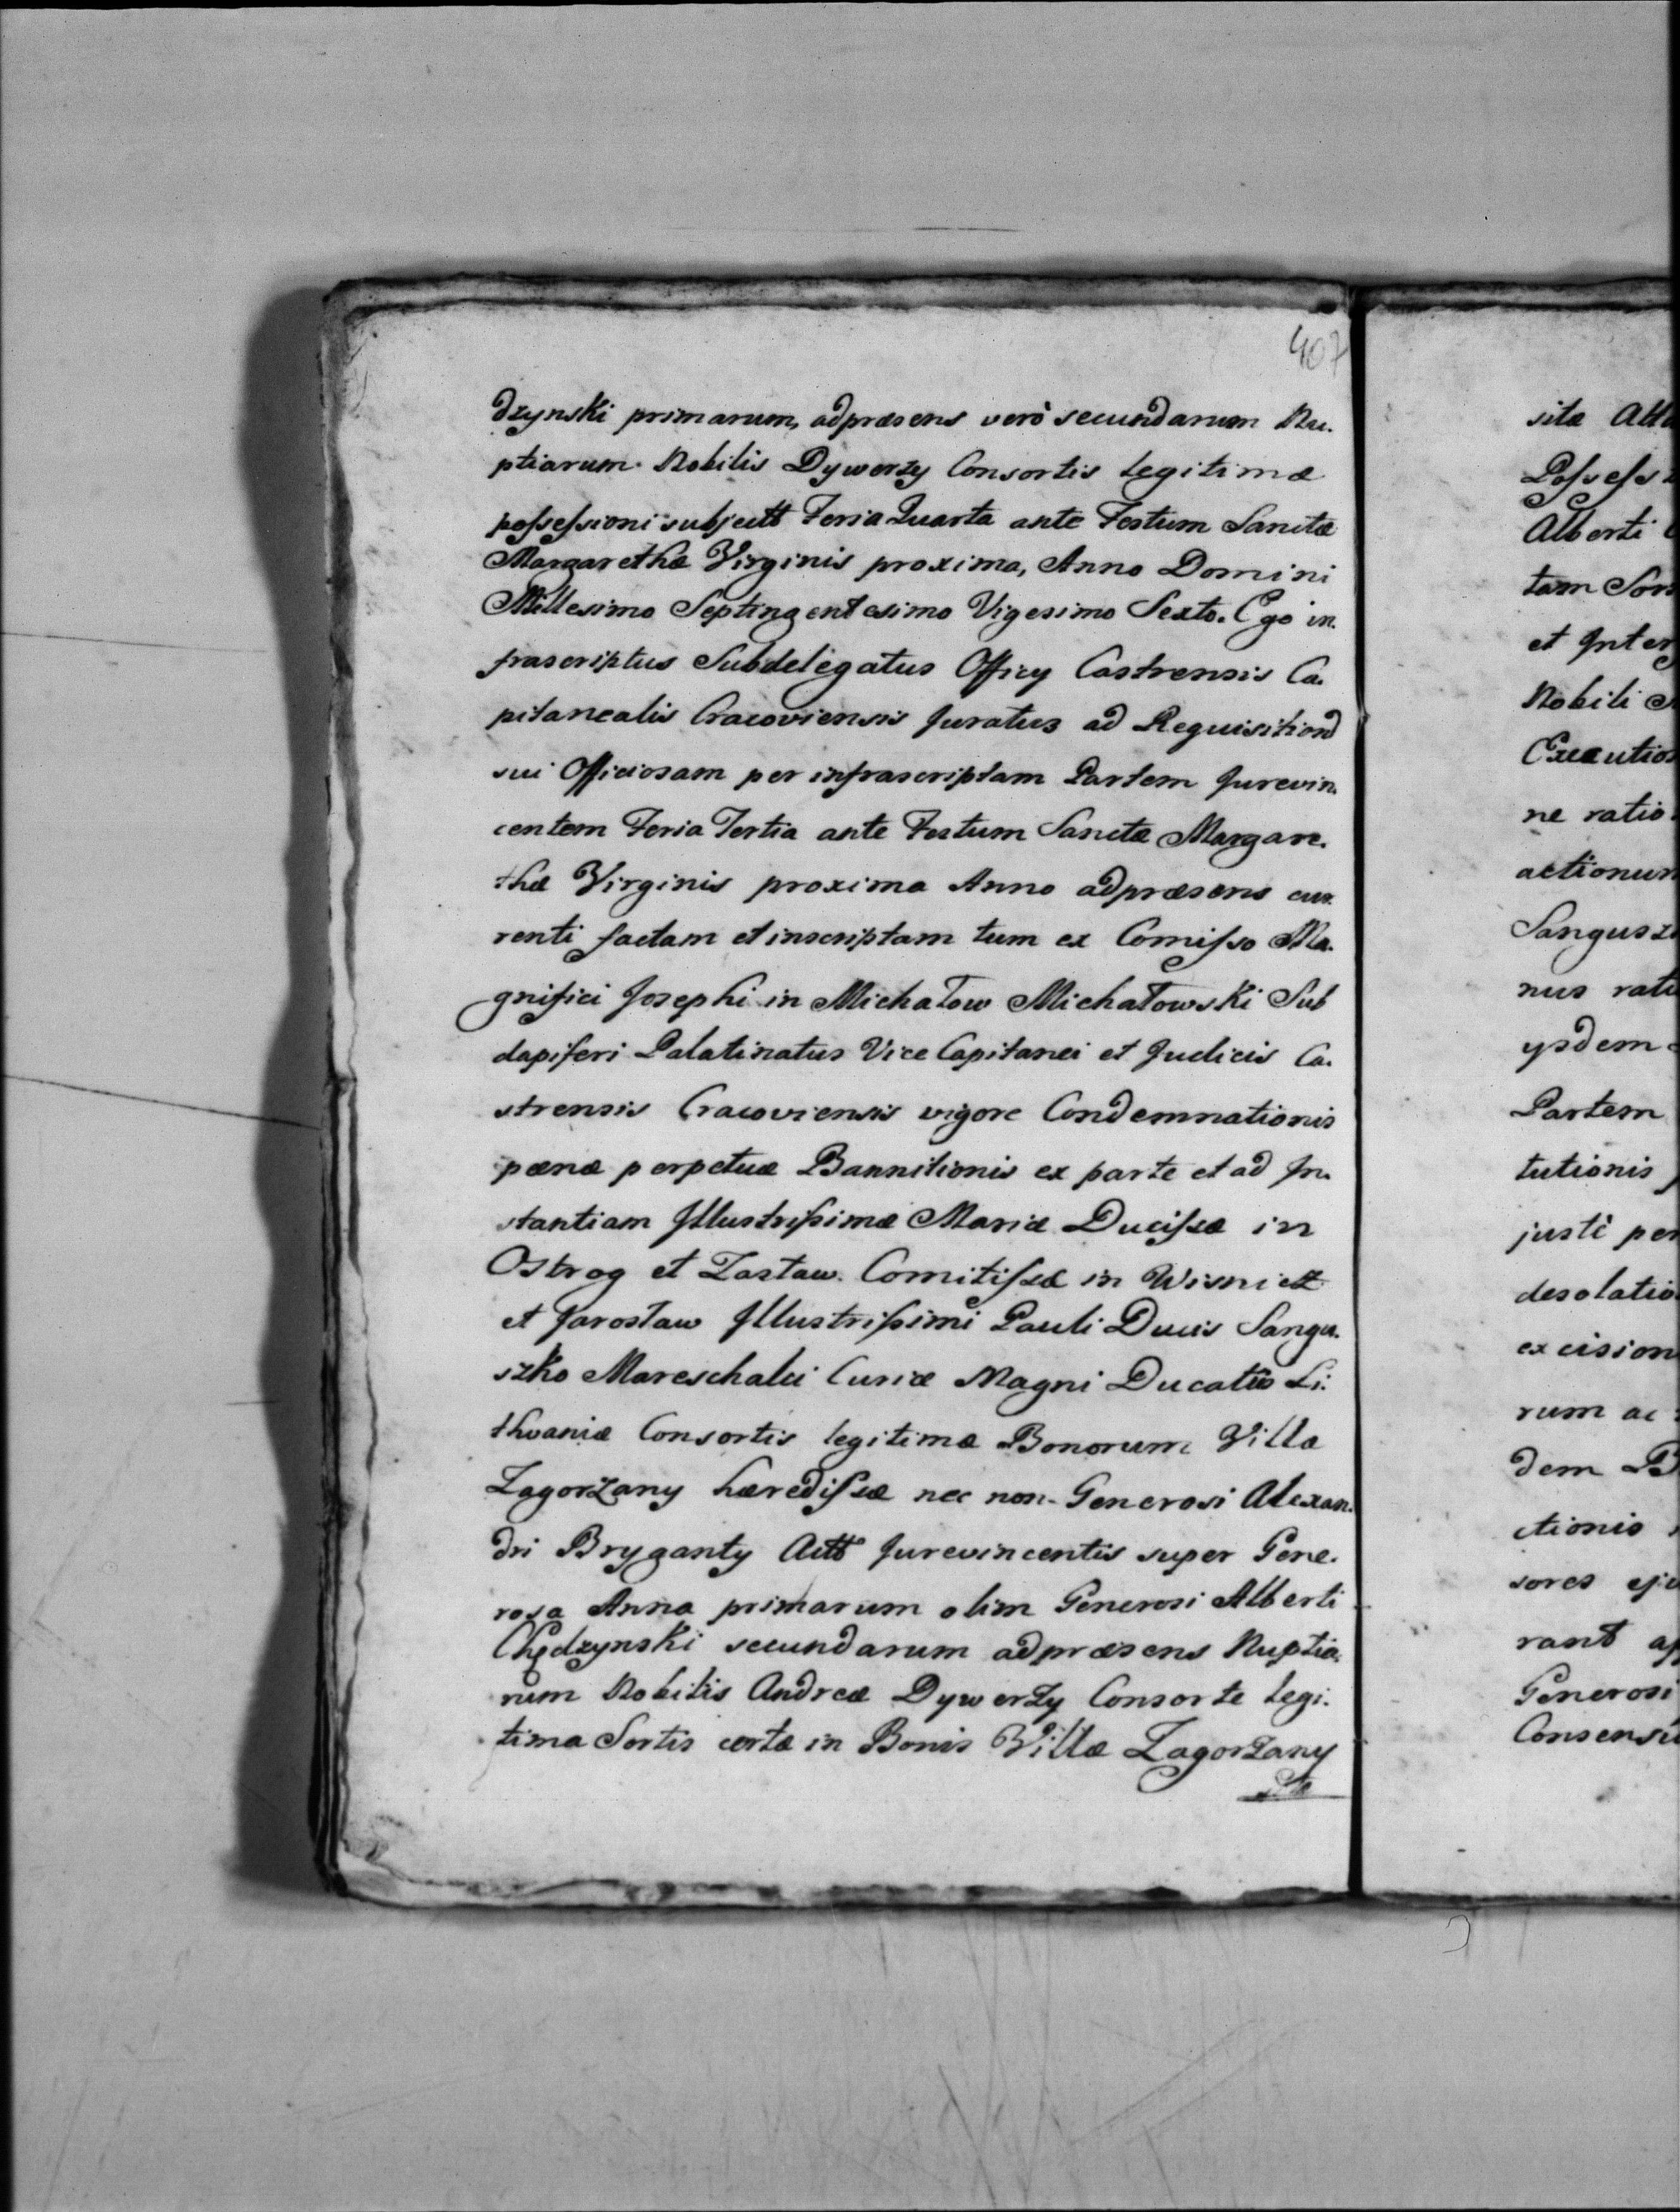 407
dzynski primarum, adpræsens verò secundarum Nu.
ptiarum. Nobilis Dywerży Consortis legitimæ
possessioni subjectt Feria Quarta ante Festum Sanctæ
Margarethæ Virginis proxima, Anno Domini
Millesimo Septingentesimo Vigesimo Sexto. Ego in.
frascriptus Subdelegatus Officy Castrensis Ca.
pitanealis Cracoviensis Juratus ad Requisitiond
sui Officiosam per infrascriptam Partem Jurevin.
centem Feria Tertia ante Festum Sanctæ Margare.
thæ Virginis proxima Anno adpræsens cur.
renti factam et inscriptam tum ex Comisso Ma.
gnifici Josephi in Michałow Michałowski Sub
dapiferi Palatinatus Vice Capitanei et Judicis Ca.
strensis Cracoviensis vigore Condemnationis
pænæ perpetuæ Bannitionis ex parte et ad In.
stantiam Illustrissimæ Mariæ Ducissæ in
Ostrog et Zasław. Comitissæ in Wisnicz
et Jarosław Illustrissimi Pauli Ducis Sangu.
szko Mareschalci Curiæ Magni Ducatûs Li.
thvaniæ Consortis legitimæ Bonorum Villæ
Zagorzany hæredissæ nec non Generosi Alexan.
dri Bryganty Actt Jurevincentis super Gene.
rosa Anna primarum olim Generosi Alberti
Chędzynski secundarum adpræsens Nuptia.
rum Nobilis Andreæ Dywerży Consorte legi.
tima Sortis certæ in Bonis Villæ Zagorzany
sitæ
Possess
Alberti
tam
et Inter
Nobili
Executio
ne ratio
actionum
Sangusz
nus rati
ysdem
Partem
tutionis
justè per
desolatio
excision
rum ac
dem
ctionis
sores eju
rant
Generosi
Consensu